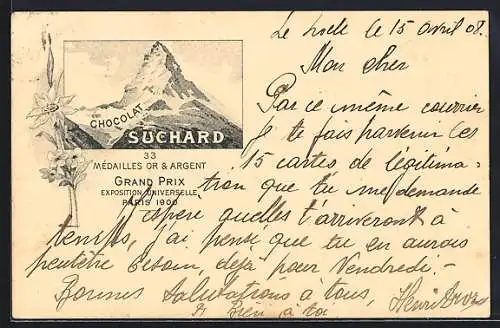 CHOCOLAT
SUCHARD
33
MÉDAILLES OR & ARGENT
GRAND PRIX
EXPOSITION UNIVERSELLE
PARIS 1900
Le Locle le 15 avril 08.
Mon cher
Par ce même courrier
je te fais parvenir les
15 cartes de légitima:
tion que tu me demande
J'espère quelles t'arriveront à
temps, j'ai pensé que tu en aurais
peutêtre besoin, déjà pour Vendredi.-
Bonnes salutations à tous,
Bien à toi
Henri